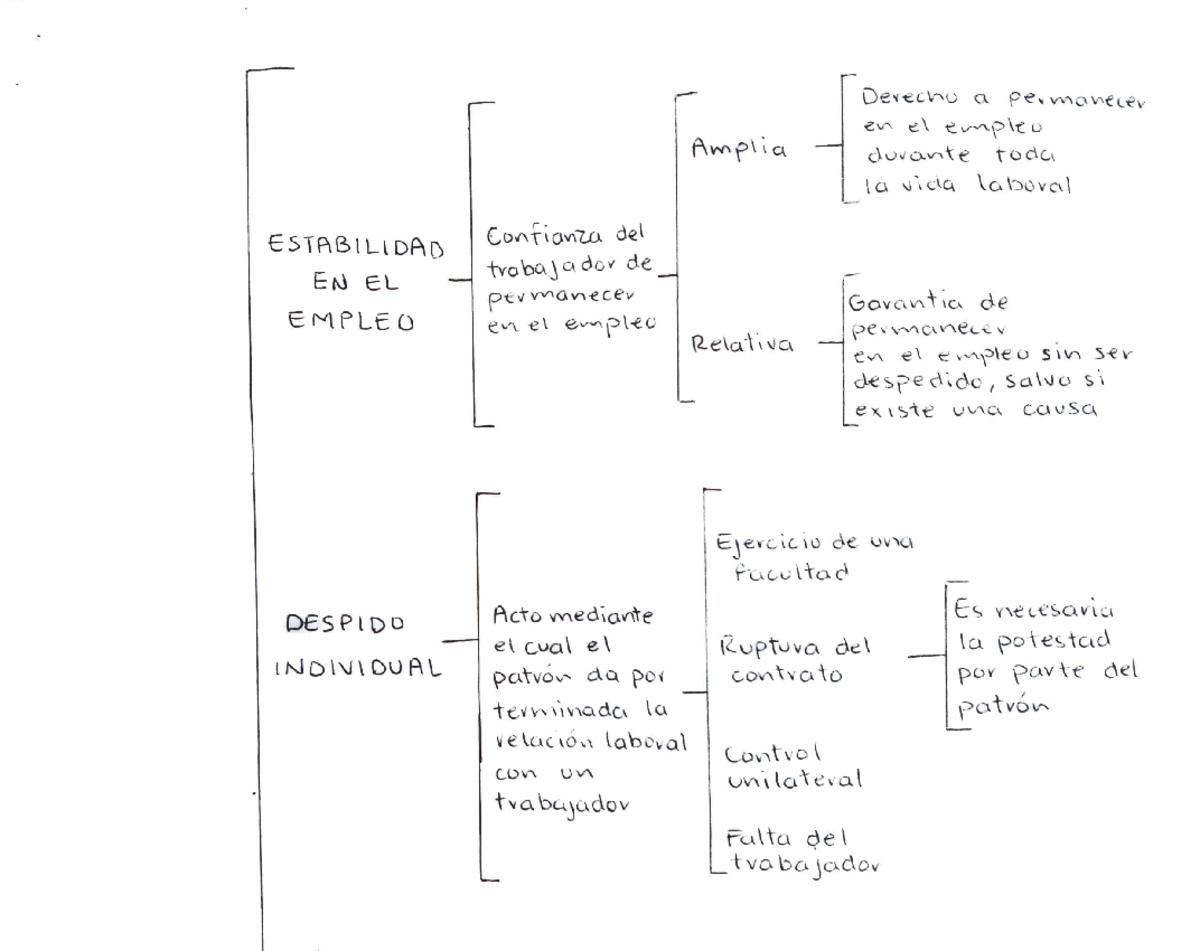 ESTABILIDAD
EN EL
EMPLEO
Confianza del
trabajador de
permanecer
en el empleo
Amplia
Derecho a permanecer
en el empleo
durante toda
la vida laboral
Relativa
Garantia de
permanecer
en el empleo sin ser
despedido, salvo si
existe una causa
DESPIDO
INDIVIDUAL
Acto mediante
el cual el
patrón da por
terminada la
relación laboral
con un
trabajador
Ejercicio de una
facultad
Ruptura del
contrato
Es necesaria
la potestad
por parte del
patrón
Control
unilateral
Falta del
trabajador